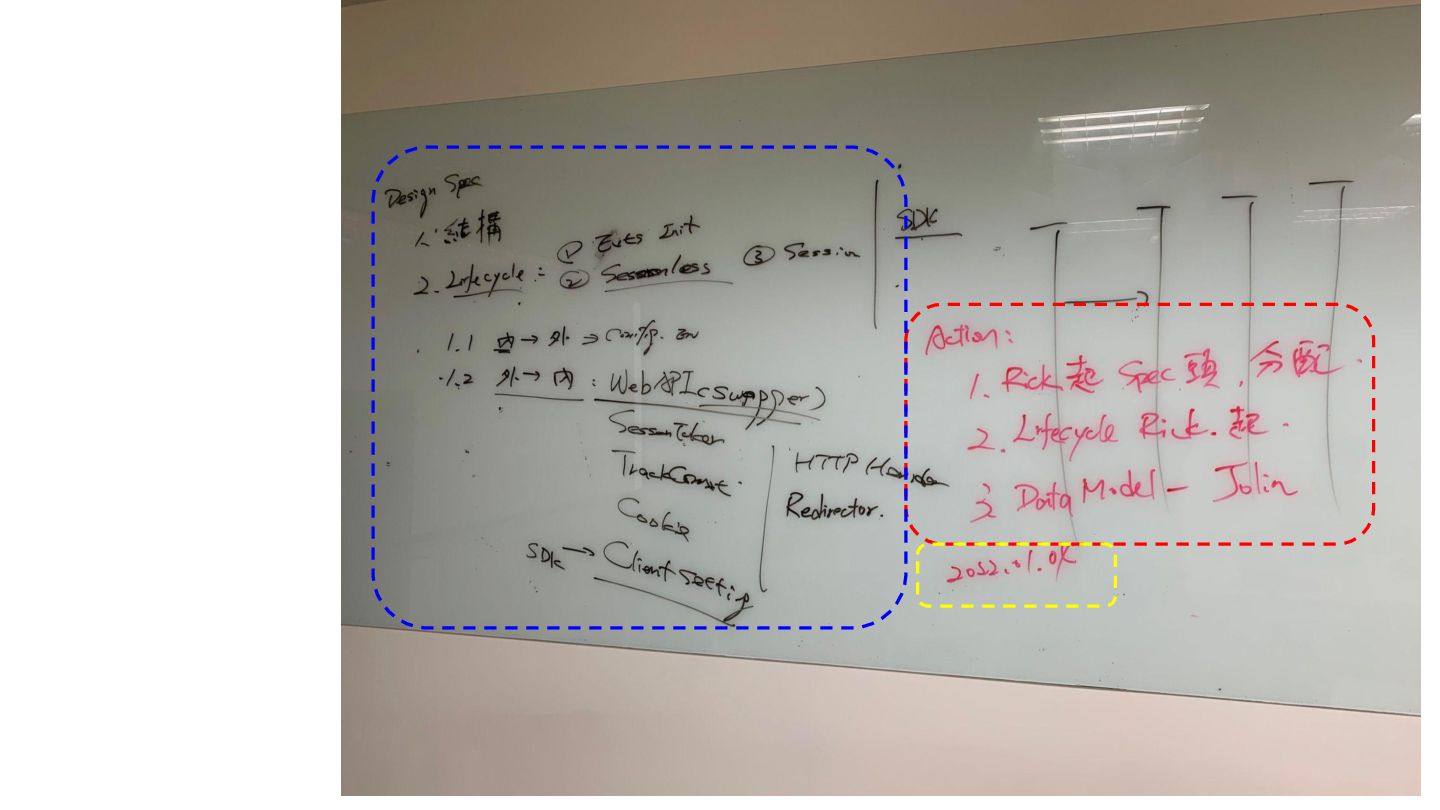 Design Spec
1. 結構
2. Lifecycle : ① Init
② Sessionless ③ Session
1.1 內 → 外 → Config.
1.2 外 → 內 : Web API
Session Token
Track
Cookie
SDK → Client Setting
HTTP Handler
Redirector.
SDK
Action:
1. Rick 起 Spec 頭, 分配.
2. Lifecycle Rick. 起.
3. Data Model - Jolin